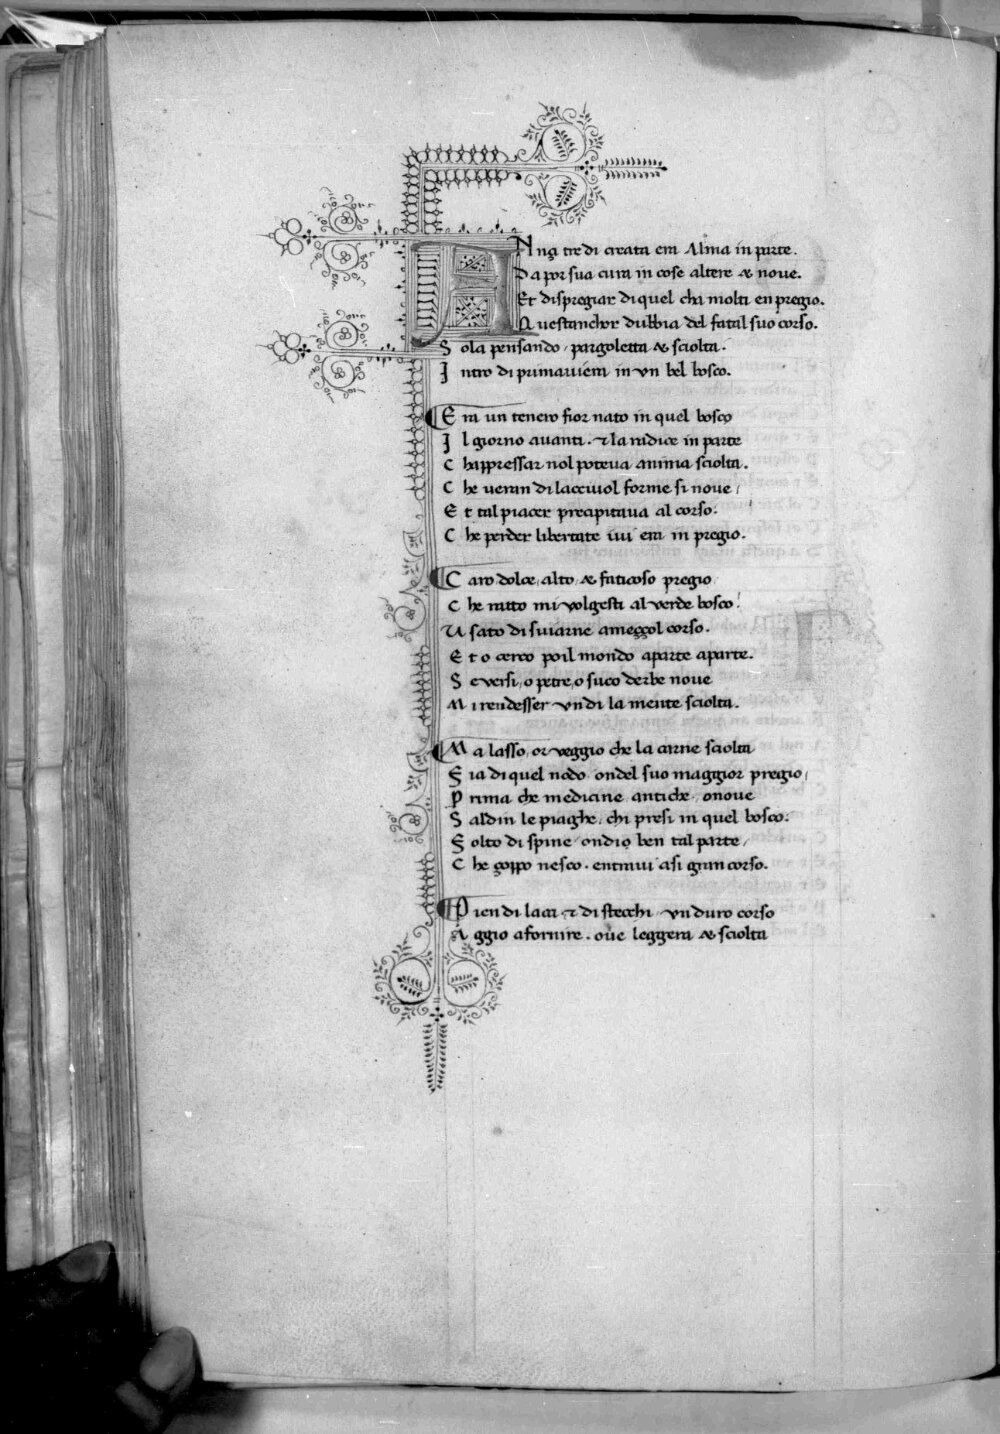 ANgi tre di creata era Alma in parte.
Da por sua cura in cose altere & noue.
Et dispregiar di quel cha molti en pregio.
Quest anchor dubbia del fatal suo corso.
Sola pensando, pargoletta & sciolta.
Intro di primauiera in un bel bosco.
Era un tenero fior nato in quel bosco
Il giorno auanti. & la radice in parte
Chappressar nol poteua anima sciolta.
Che ueran di lacciuol forme si noue,
Et tal piacer precipitaua al corso.
Che perder libertate iui era in pregio.
Caro dolce, alto, & faticoso pregio
Che ratto mi volgesti al verde bosco!
Usato di suiarne a meggol corso.
Et o cerco poil mondo aparte aparte.
Se versi, o petre, o suco derbe noue
Mi rendesser un di la mente sciolta.
Ma lasso, or veggio che la carne sciolta
Sia di quel nodo, ondel suo maggior pregio,
Prima che medicine, antiche, o noue
Saldin le piaghe, chi presi in quel bosco.
Folto di spine, ondio ben tal parte,
Che goppo nesco. entraui asi gran corso.
Pien di lacci & di stecchi, un duro corso
Aggio a fornire. oue leggera & sciolta